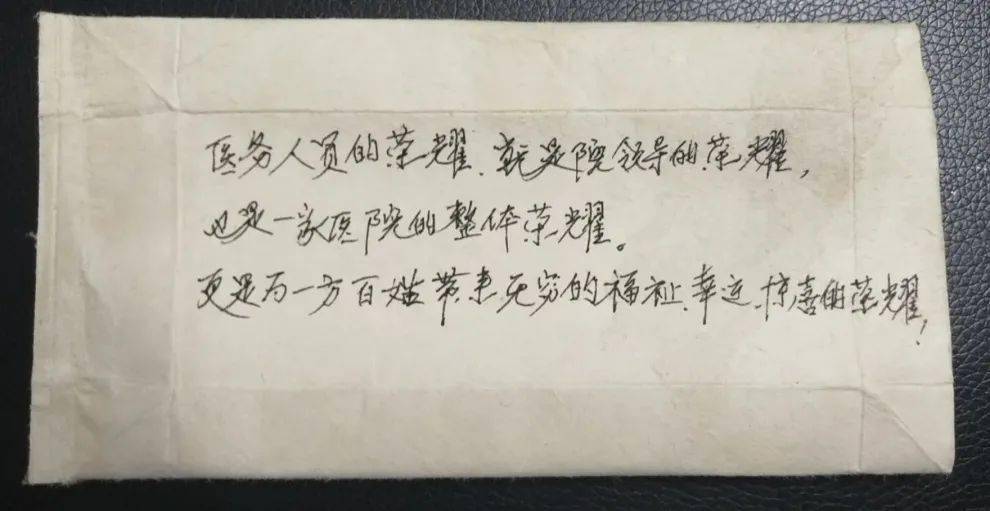 医务人员的荣耀、就是院领导的荣耀,
也是一家医院的整体荣耀。
更是为一方百姓带来无穷的福祉、幸运、惊喜的荣耀!